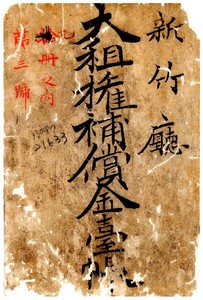 新竹廳
大租權補償金臺帳
九冊之內
第三號
21633